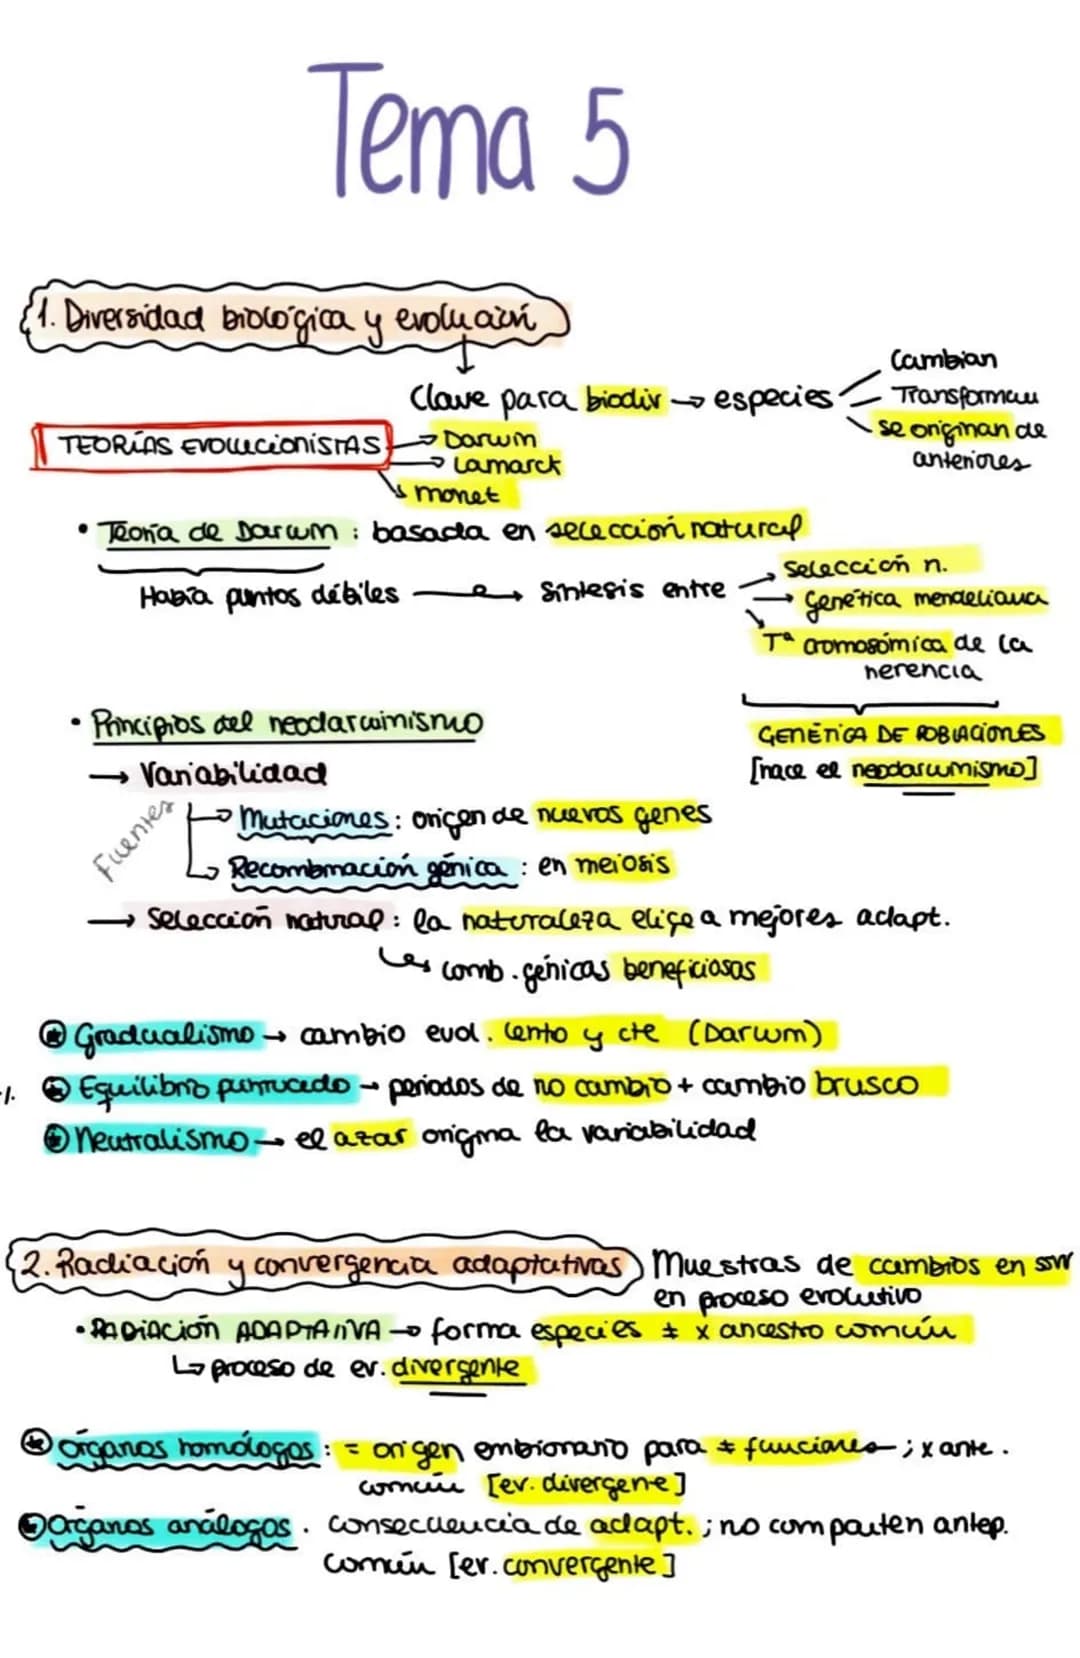 Tema 5
1. Diversidad biológica y evolución
Clave para biodiv → especies
Cambian
Transforman
se originan de
anteriores
TEORÍAS EVOLUCIONISTAS
→ Darwin
→ Lamarck
→ monet
• Teoría de Darwin : basada en selección natural
Había puntos débiles → Síntesis entre
→ Selección n.
→ Genética mendeliana
Tª cromosómica de la
herencia
GENÉTICA DE POBLACIONES
[nace el neodarwinismo]
• Principios del neodarwinismo
→ Variabilidad
Fuentes
→ Mutaciones : origen de nuevos genes
→ Recombinación génica : en meiosis
→ Selección natural : la naturaleza elige a mejores adapt.
→ comb. génicas beneficiosas
Gradualismo → cambio evol. lento y cte (Darwin)
Equilibrio puntuado → periodos de no cambio + cambio brusco
Neutralismo → el azar origina la variabilidad
2. Radiación y convergencia adaptativas
Muestras de cambios en ssvv
en proceso evolutivo
• RADIACIÓN ADAPTATIVA → forma especies ≠ x ancestro común
↳ proceso de ev. divergente
órganos homólogos : = origen embrionario para ≠ funciones ; x ante.
común [ev. divergene]
órganos análogos . consecuencia de adapt. ; no comparten antep.
común [ev. convergente]